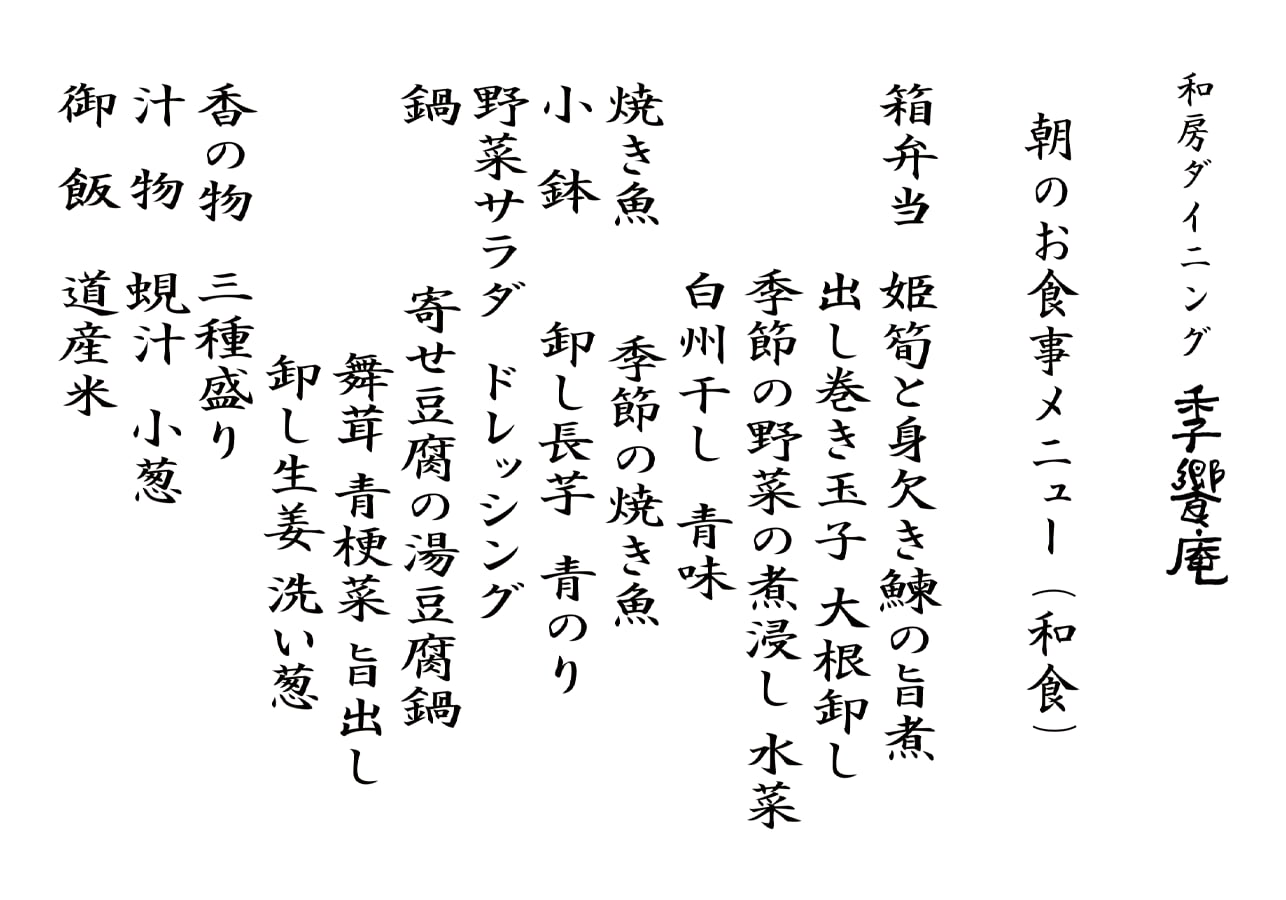 和房ダイニング 季響庵
朝のお食事メニュー（和食）
箱弁当 姫筍と身欠き鰊の旨煮
出し巻き玉子 大根卸し
季節の野菜の煮浸し 水菜
白州干し 青味
焼き魚 季節の焼き魚
小鉢 卸し長芋 青のり
野菜サラダ ドレッシング
鍋 寄せ豆腐の湯豆腐鍋
舞茸 青梗菜 旨出し
卸し生姜 洗い葱
香の物 三種盛り
汁物 蜆汁 小葱
御飯 道産米